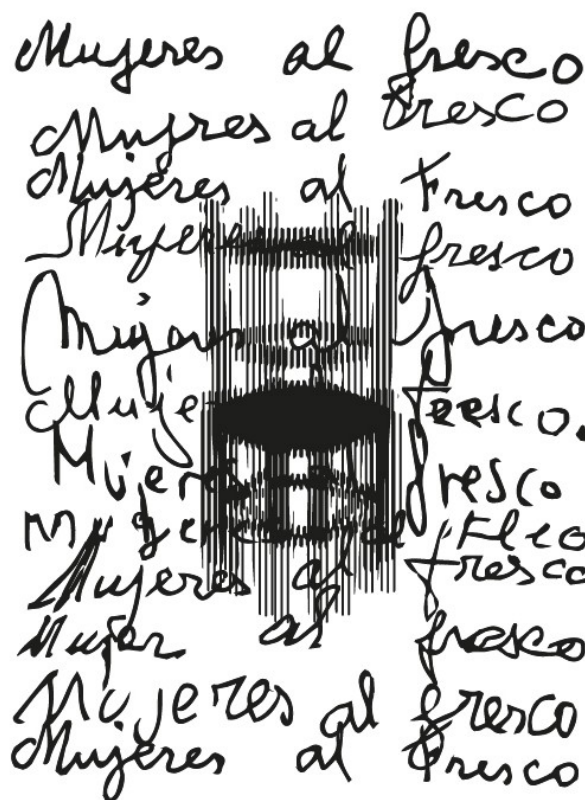 Mujeres al fresco
Mujeres al fresco
Mujeres al Fresco
Mujeres al fresco
Mujeres al fresco
Muje fresco.
Mujeres fresco
al
Mujeres al fresco
Mujer al fresco
Mujeres al fresco
Mujeres al Fresco